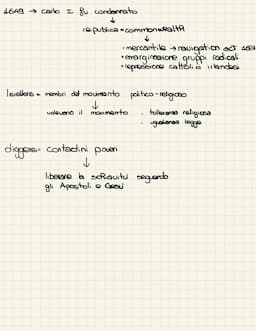 1649 → Carlo I fu condannato
↓
repubblica = commonwealth
↓
• mercantile → navigation act 1651
• emarginazione gruppi radicali
• repressione cattolici irlandesi
levellers = membri del movimento politico-religioso
↓
volevano il movimento . tolleranza religiosa
. uguaglianza legge
diggers = contadini poveri
↓
liberare la schiavitù seguendo
gli Apostoli e Gesù